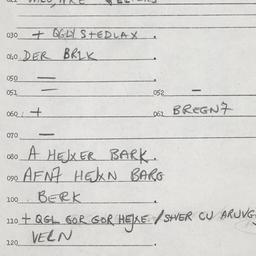 030 + QGLY S+EDLAX .
040 DER BRLK .
050 —
051 — 052 —
060 + 061 BREGN7
070 —
080 A HEJXER BARK .
090 AFN7 HEJXN BARG
100 BERK .
110 + QGL GOR GOR HEJXE / SHVER CU ARJVG
120 VELN .